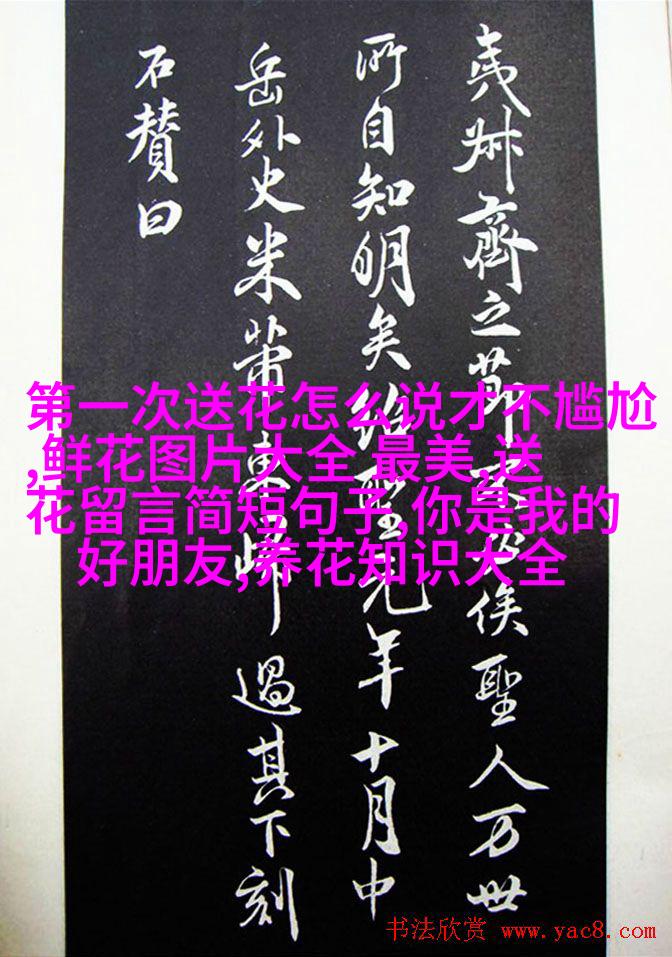 夷叔齊之節豈必俟聖人万世
所自知明矣紹聖元年十月中
岳外史米芾東歸過其下刻
石贊曰
第一次送花怎么说才不尴尬
,鲜花图片大全 最美,送
花留言简短句子,你是我的
好朋友,养花知识大全
书法欣赏 www.yac8.com